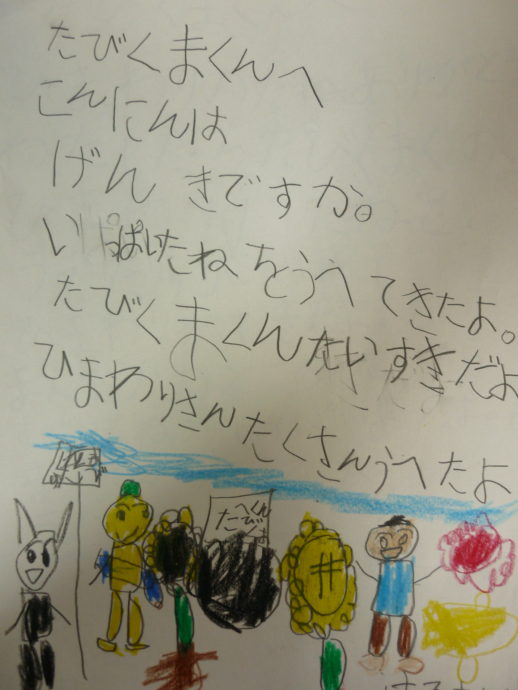 たびくまくんへ
こんにんは
げんきですか。
いっぱいたねをうへてきたよ。
たびくまくんたいすきだよ
ひまわりさんたくさんうへたよ